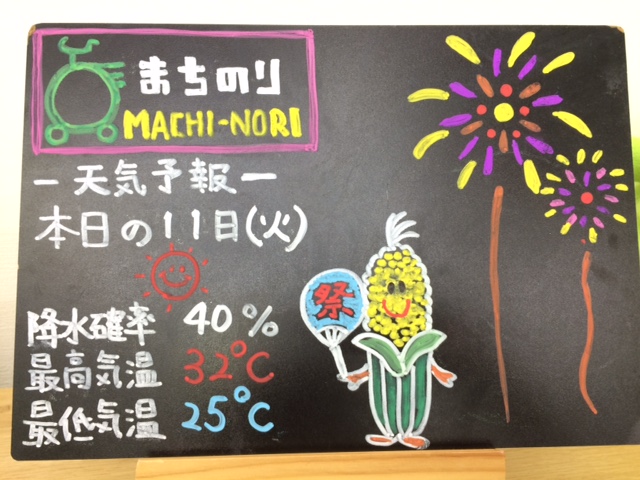 まちのり
MACHI-NORI
-天気予報-
本日の11日(火)
降水確率 40%
最高気温 32℃
最低気温 25℃
祭